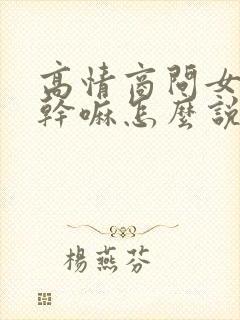 高情商問女
幹嘛怎麼說
楊燕芬